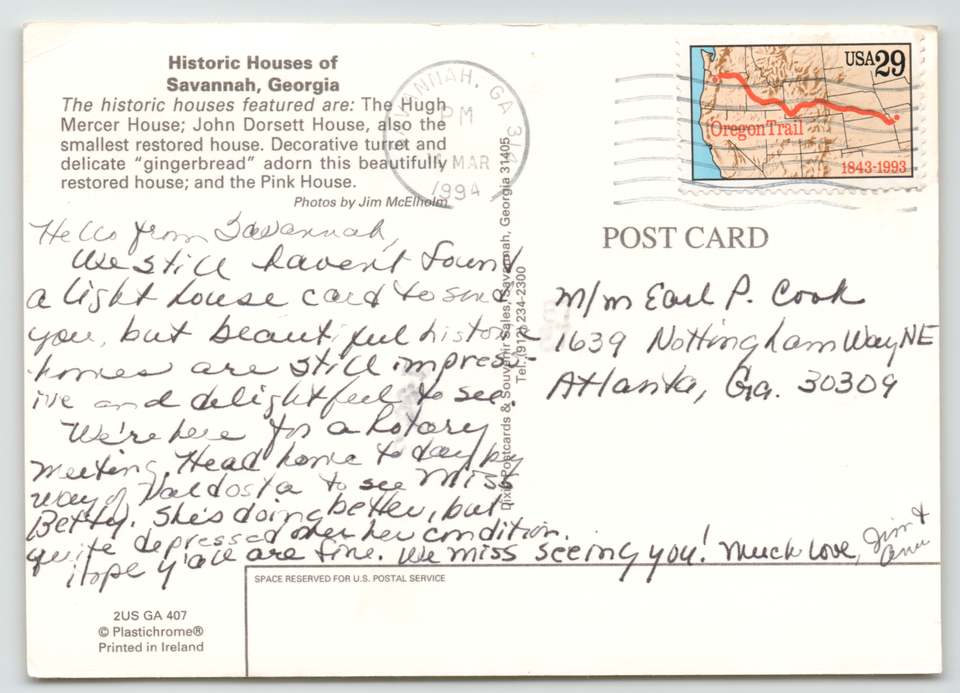 Historic Houses of
Savannah, Georgia
The historic houses featured are: The Hugh
Mercer House; John Dorsett House, also the
smallest restored house. Decorative turret and
delicate "gingerbread" adorn this beautifully
restored house; and the Pink House.
Photos by Jim McElholm
SAVANNAH, GA 314
PM
MAR
1994
USA 29
Oregon Trail
1843-1993
POST CARD
Hello from Savannah,
We still haven't found
a light house card to send
you, but beautiful historic
homes are still impress-
ive and delightful to see.
We're here for a Rotary
meeting. Head home today by
way of Valdosta to see Miss
Betty. She's doing better, but
quite depressed over her condition.
Hope y'all are fine. We miss seeing you! Much love, Jim &
M/m Earl P. Cook
1639 Nottingham Way NE
Atlanta, Ga. 30309
Dixie Postcards & Souvenir Sales, Savannah, Georgia 31405
Tel. (912) 234-2300
SPACE RESERVED FOR U.S. POSTAL SERVICE
2US GA 407
© Plastichrome®
Printed in Ireland